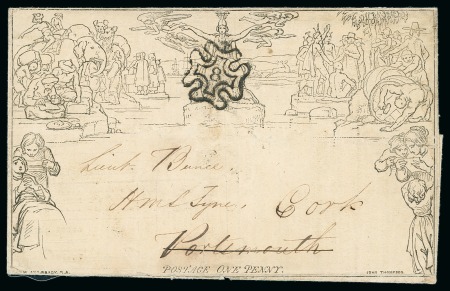 8
Lieut. Bunce,
H.M.S. Tyne, Cork
Portsmouth
POSTAGE ONE PENNY.
W. MULREADY, R.A. JOHN THOMPSON